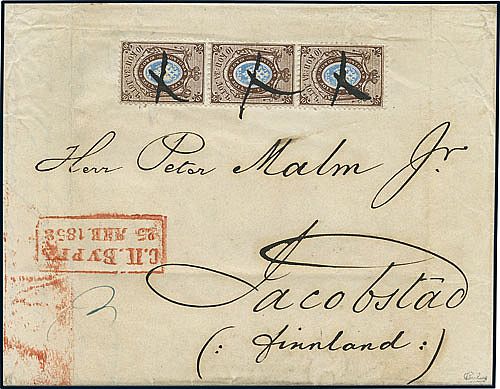 Herr Peter Malm Jr.
С.П.БУРГЪ
25 ЯНВ.1858
Jacobstad
(: Finnland :)